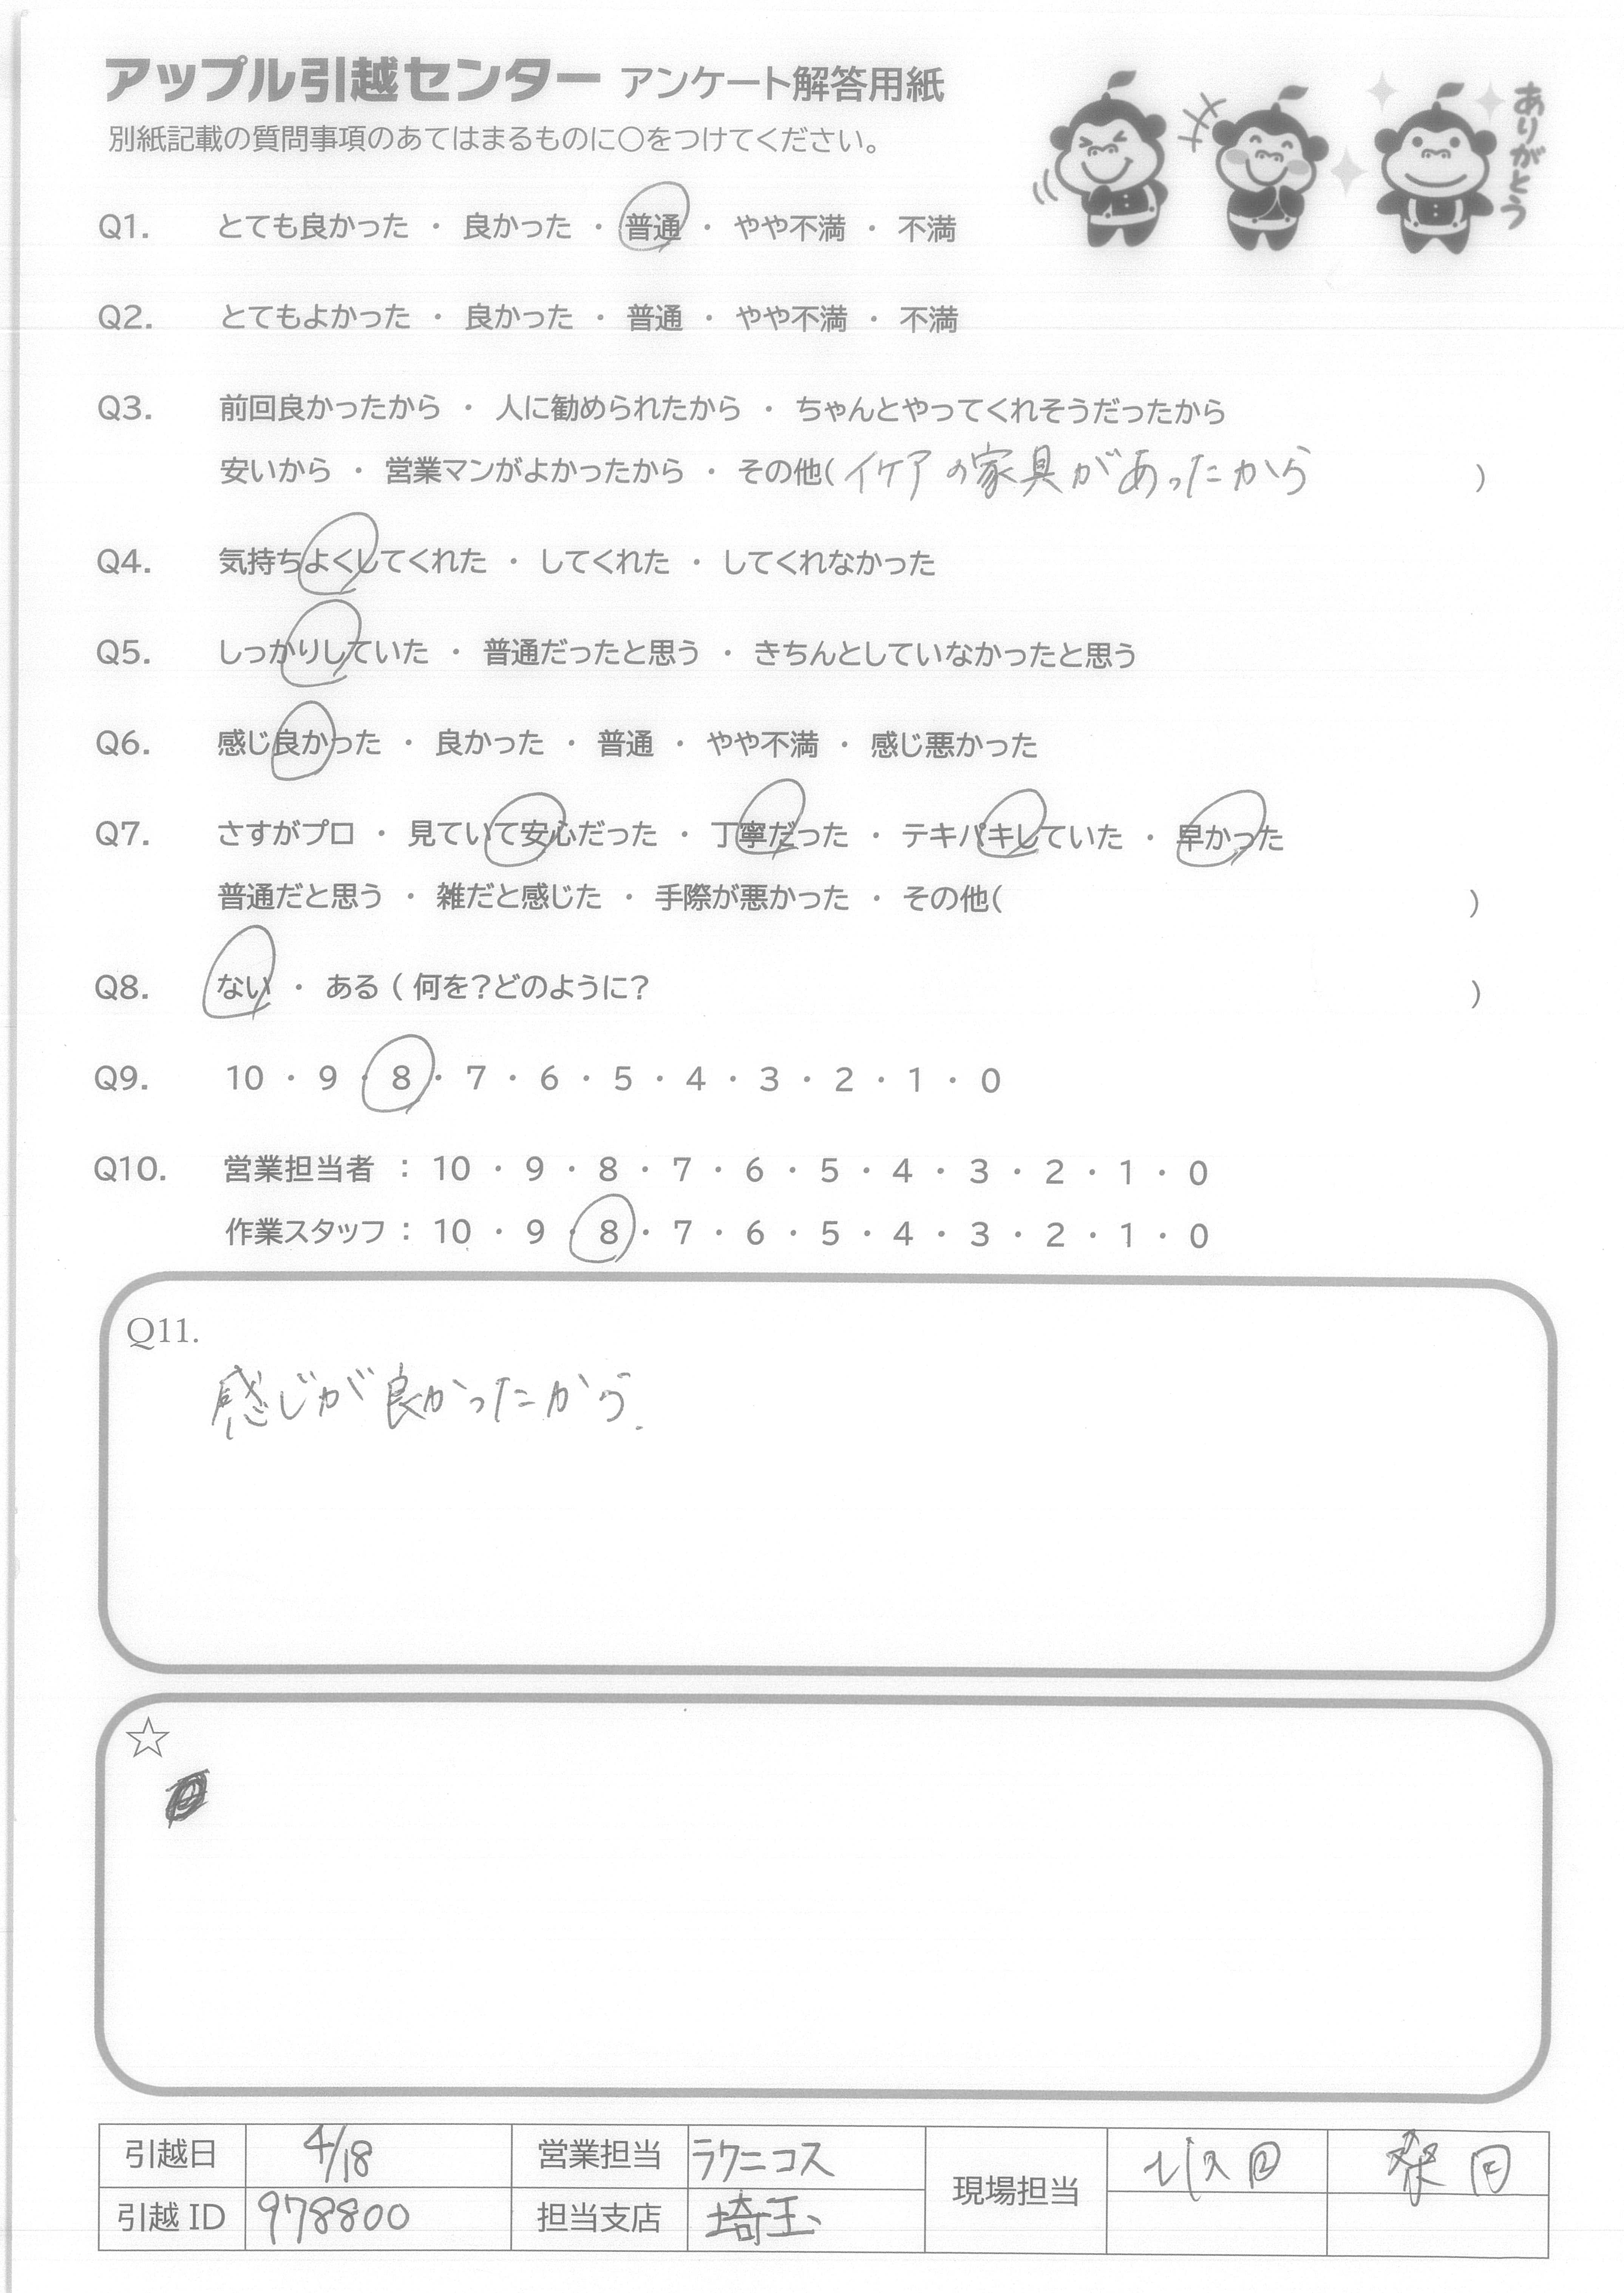 アップル引越センター アンケート解答用紙
別紙記載の質問事項のあてはまるものに○をつけてください。
ありがとう
Q1. とても良かった ・ 良かった ・ 普通 ・ やや不満 ・ 不満
Q2. とてもよかった ・ 良かった ・ 普通 ・ やや不満 ・ 不満
Q3. 前回良かったから ・ 人に勧められたから ・ ちゃんとやってくれそうだったから
安いから ・ 営業マンがよかったから ・ その他( イケアの家具があったから )
Q4. 気持ちよくしてくれた ・ してくれた ・ してくれなかった
Q5. しっかりしていた ・ 普通だったと思う ・ きちんとしていなかったと思う
Q6. 感じ良かった ・ 良かった ・ 普通 ・ やや不満 ・ 感じ悪かった
Q7. さすがプロ ・ 見ていて安心だった ・ 丁寧だった ・ テキパキしていた ・ 早かった
普通だと思う ・ 雑だと感じた ・ 手際が悪かった ・ その他( )
Q8. ない ・ ある ( 何を?どのように? )
Q9. 10 ・ 9 ・ 8 ・ 7 ・ 6 ・ 5 ・ 4 ・ 3 ・ 2 ・ 1 ・ 0
Q10. 営業担当者 : 10 ・ 9 ・ 8 ・ 7 ・ 6 ・ 5 ・ 4 ・ 3 ・ 2 ・ 1 ・ 0
作業スタッフ : 10 ・ 9 ・ 8 ・ 7 ・ 6 ・ 5 ・ 4 ・ 3 ・ 2 ・ 1 ・ 0
Q11.
感じが良かったから.
☆
引越日 4/18 営業担当 ラクニコス 現場担当
引越 ID 978800 担当支店 埼玉